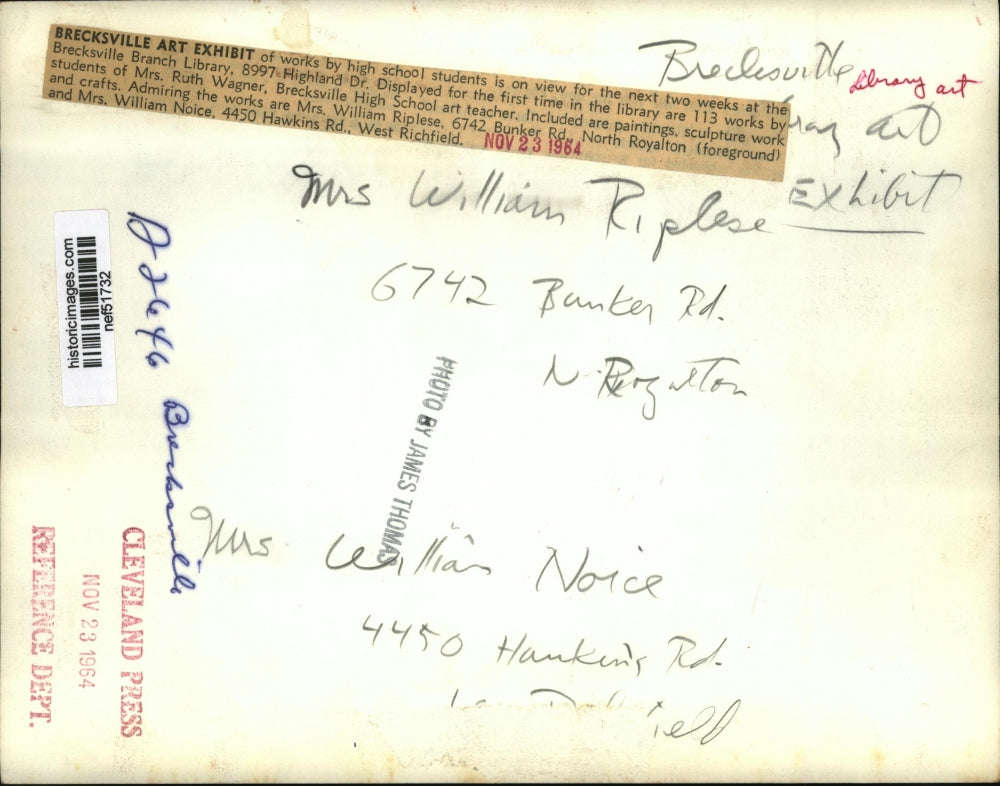 BRECKSVILLE ART EXHIBIT of works by high school students is on view for the next two weeks at the
Brecksville Branch Library, 8997 Highland Dr. Displayed for the first time in the library are 113 works by
students of Mrs. Ruth Wagner, Brecksville High School art teacher. Included are paintings, sculpture work
and crafts. Admiring the works are Mrs. William Riplese, 6742 Bunker Rd., North Royalton (foreground)
and Mrs. William Noice, 4450 Hawkins Rd., West Richfield.
NOV 23 1964
Brecksville
Library art
art
Exhibit
Mrs William Riplese
6742 Bunker Rd.
N. Royalton
historicimages.com
nef51732
D2646 Brecksville
PHOTO BY JAMES THOMAS
Mrs William Noice
4450 Hawkins Rd.
CLEVELAND PRESS
NOV 23 1964
REFERENCE DEPT.